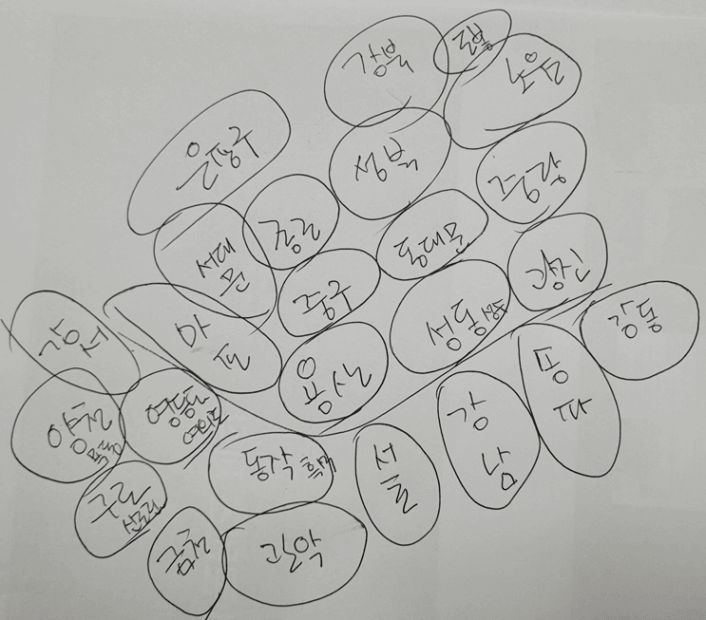 강북
도봉
노원
은평구
성북
중랑
서대
문
종로
동대문
광진
중구
성동
성수
강동
강서
마
포
용산
송
파
양천
목동
영등포
여의도
동작
흑석
서
초
강
남
구로
신도림
금천
관악